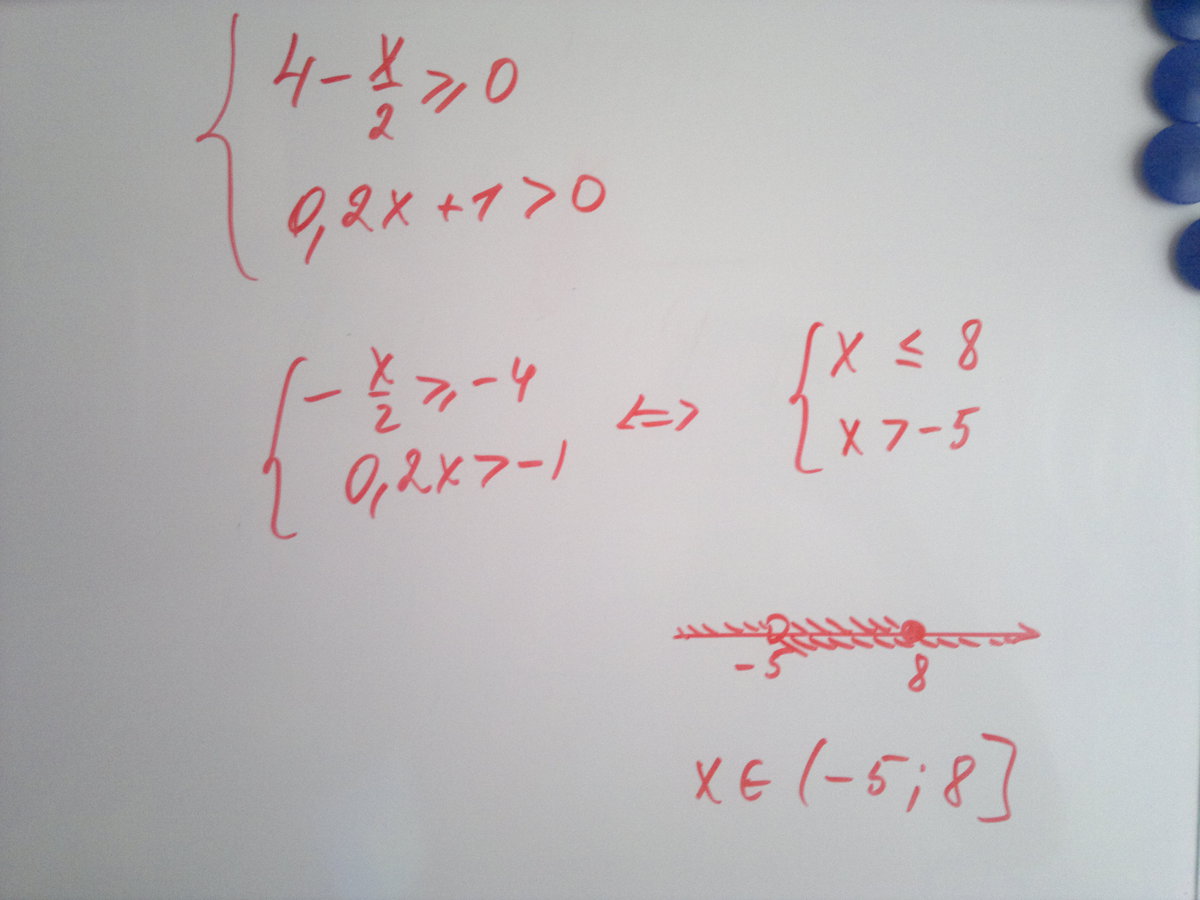 4 - x/2 ⩾ 0
0,2x + 1 > 0
- x/2 ⩾ -4 <=> x ≤ 8
0,2x > -1 x > -5
-5 8
x ∈ (-5; 8]